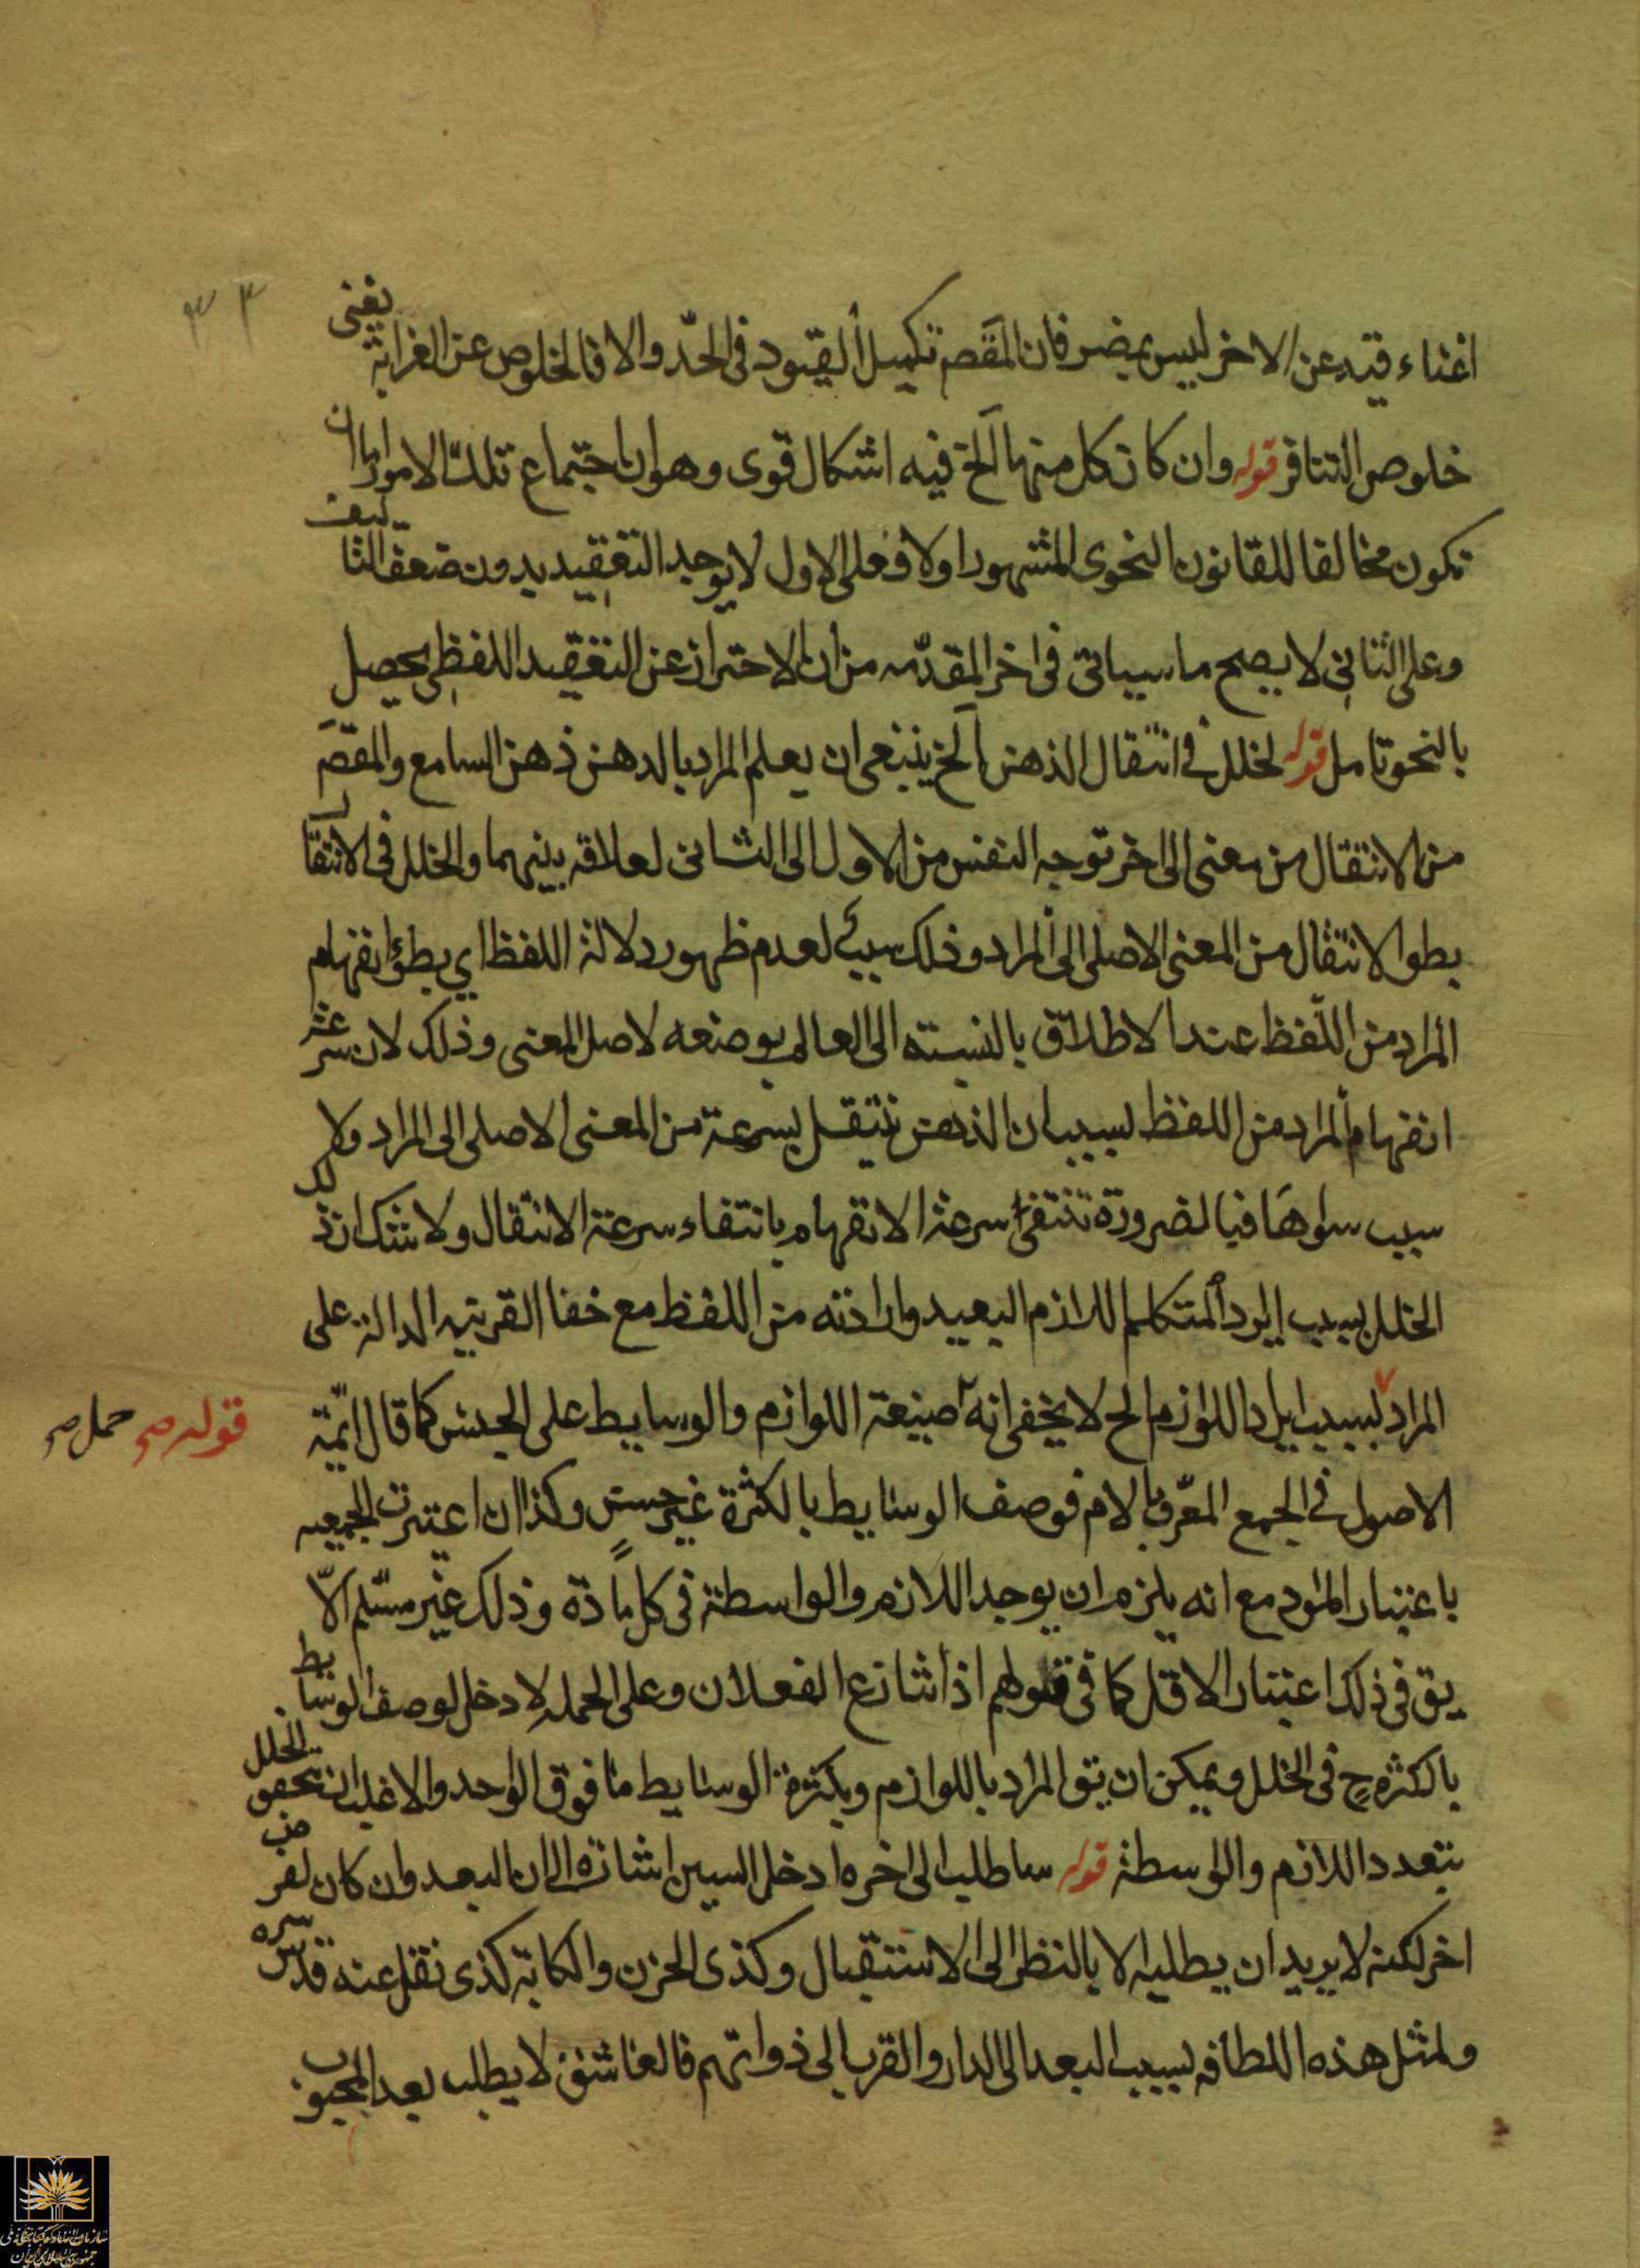 ٣٣
اغناء قيد عن الاخر ليس بمضر فان المقصم تكميل القيود فى الحدّ والا فالخلوص عن الغرابة يغنى
خلوص التنافر قوله وان كان كل منها الخ فيه اشكال قوى وهو ان اجتماع تلك الامور اما ان
تكون مخالفا للقانون النحوى المشهور اولا فعلى الاول لا يوجد التعقيد بدون ضعف التاليف
وعلى الثانى لا يصح ما سياتى فى اخر المقدّمه من ان الاحتراز عن التعقيد اللفظى يحصل
بالنحو تامل قوله لخلل فى انتقال الذهن الخ ينبغى ان يعلم المراد بالذهن ذهن السامع والمقصَ
من الانتقال من معنى الى اخر توجه النفس من الاول الى الثانى لعلاقه بينهما والخلل فى الانتقال
بطو الانتقال من المعنى الاصلى الى المراد وذلك سبب لعدم ظهور دلالة اللفظ اي بطؤ انفهام
المراد من اللفظ عند الاطلاق بالنسبته الى العالم بوضعه لاصل المعنى وذلك لان سرعة
انفهام المراد من اللفظ بسبب ان الذهن ينتقل بسرعة من المعنى الاصلى الى المراد ولا
سبب سواها فبالضرورة تنتفى سرعة الانفهام بانتفاء سرعة الانتقال ولا شك ان ذلك
الخلل بسبب ايراد المتكلم اللازم البعيد وارادته من اللفظ مع خفا القرينه الدالة على
المراد بسبب ايراد اللوازم الخ لا يخفى انه صيغة اللوازم والوسايط على الجنس كما قال ائمّة
قوله صح حمل صح
الاصول فى الجمع المعرّف بالام فوصف الوسايط بالكثرة غير حسن وكذا ان اعتبرت الجمعيه
باعتبار المواد مع انه يلزم ان يوجد اللازم والواسطة فى كل مادّة وذلك غير مسّلم الاّ
يق فى ذلك اعتبار الاقل كما فى قولهم اذا تنازع الفعلان وعلى الجمله لا دخل لوصف الوسايط
بالكثره ح فى الخلل ويمكن ان يق المراد باللوازم وبكثرة الوسايط ما فوق الواحد والاغلب ان تحقق الخلل
بتعدد اللازم والواسطة قوله ساطلب الى اخره ادخل السين اشارة الى ان البعد وان كان لغرض
اخر لكنه لا يريد ان يطلبه الا بالنظر الى الاستقبال وكذى الحزن والكابة كذى نقل عنه قدس سره
ولمثل هذه اللطافه بسبب البعد الى الدار والقرب الى ذواتهم فالعاشق لا يطلب بعد المحبوب